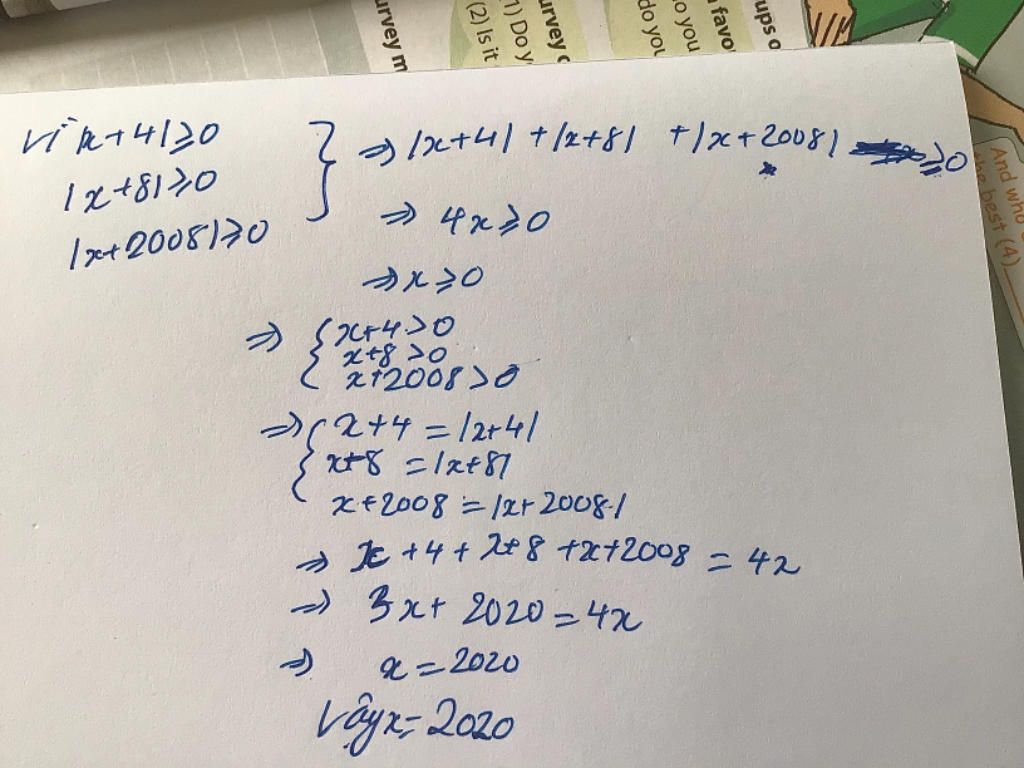 urvey m
(2) Is it
1) Do y
urvey c
do you
o you
favo
ups o
And who
the best (4)
Vì |x+4|≥0
|x+8|≥0
|x+2008|≥0
} => |x+4| + |x+8| + |x+2008| ≥0
=> 4x≥0
=> x≥0
=> { x+4>0
x+8>0
x+2008>0
=> { x+4 = |x+4|
x+8 = |x+8|
x+2008 = |x+2008|
=> x+4+x+8+x+2008 = 4x
=> 3x+2020=4x
=> x=2020
Vậy x=2020